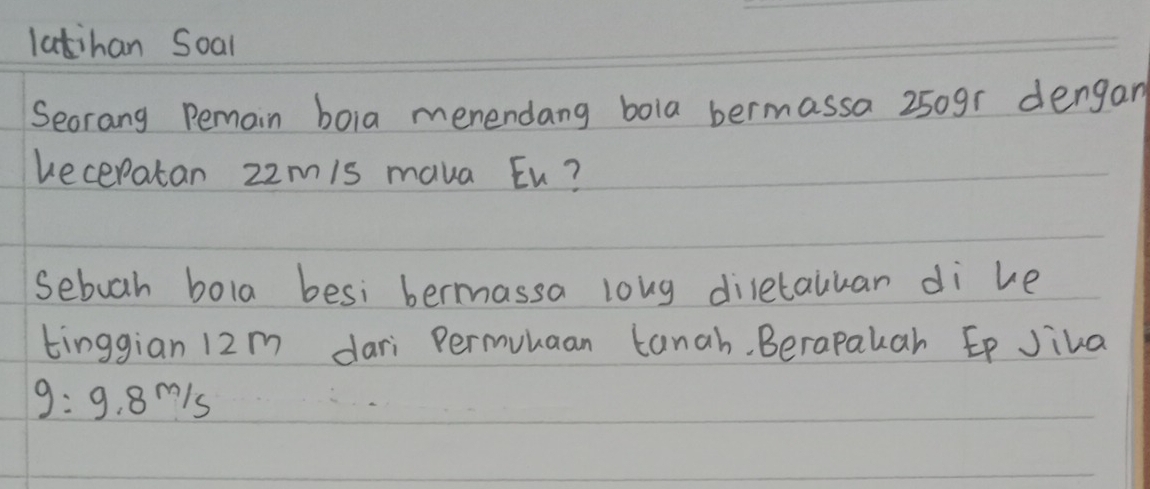 latihan Soal
Seorang Pemain bola menendang bola bermassa 250gr dengan
kecepatan 22m/s maka Ek?
Sebuah bola besi bermassa 10kg diletakkan di ke
tinggian 12m dari Permukaan tanah. Berapakah Ep Jika
g: 9.8 m/s